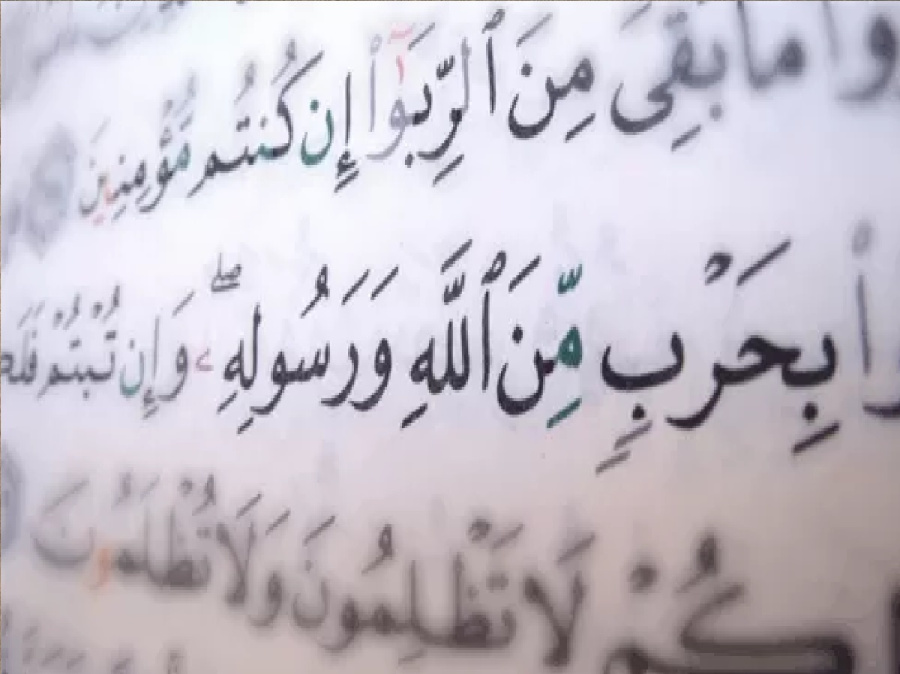 وا۟ مَا بَقِىَ مِنَ ٱلرِّبَوٰٓا۟ إِن كُنتُم مُّؤْمِنِينَ
بِحَرْبٍ مِّنَ ٱللَّهِ وَرَسُولِهِۦ ۖ وَإِن تُبْتُمْ فَلَ
لَا تَظْلِمُونَ وَلَا تُظْلَمُونَ